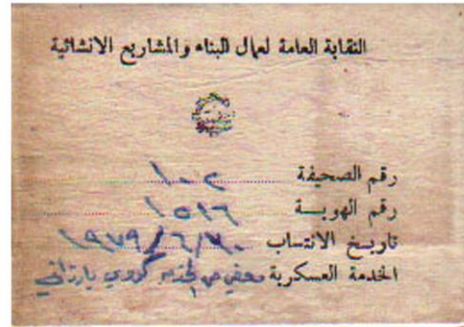 النقابة العامة لعمال البناء والمشاريع الانشائية
رقم الصحيفة ١٠٢
رقم الهويـــة ١٥١٦
تاريــخ الانتساب ١٩٧٩/٦/٢٠
الخدمة العسكرية معفي من الخدمه كردي بارزاني